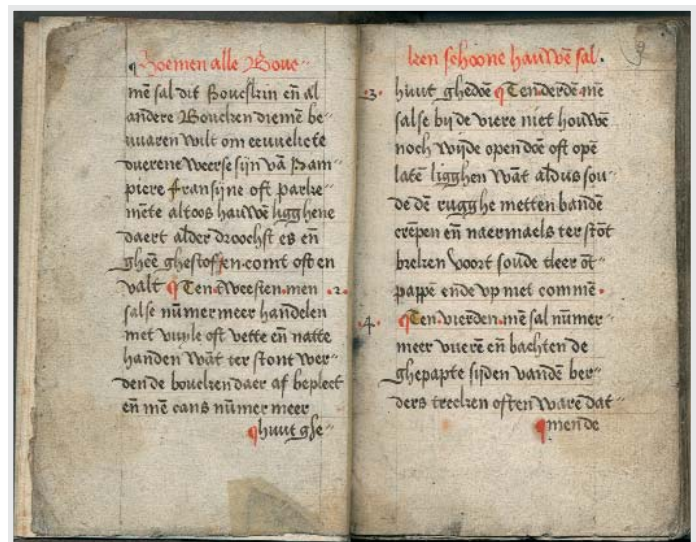 ¶ Hoemen alle Bouc⸗
mē sal dit Boucskin eñ al
andere Bouckzen diemē be⸗
uuaren wilt om eeuuelicke
duerene weerse sijn vā Pam⸗
piere fransijne oft parke⸗
mēte altoos hauwē ligghene
daert alder droochst es eñ
gheē ghestof en comt oft en
valt ¶ Ten tweesten men .2.
salse nūmermeer handelen
met vuyle oft vette eñ natte
handen wāt ter stont wer⸗
den de bouckzen daer af beplect
eñ mē cans nūmer meer
¶ huut ghe⸗
kzen schoone hauwē sal.
9
.3. huut ghedoē ¶ Ten derdē mē
salse bij de viere niet houwē
noch wijde open doē oft opē
latē ligghen wāt aldus sou⸗
de dē rugghe metten bandē
crēpen eñ naermaels ter stōt
brekzen voort soude tleer ōt⸗
pappē ende vp niet commē.
.4. ¶ Ten vierden mē sal nūmer⸗
meer vuerē eñ bachten de
ghepapte sijden vandē ber⸗
ders treckzen oft en ware dat⸗
¶ men de